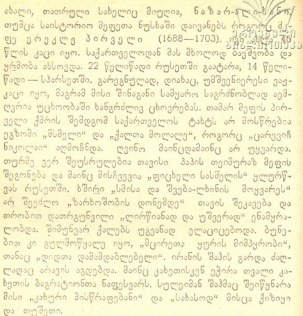 ახალი, თათრული სახელიც მიუღია, ნაზარალიხანი,
თუმცა საისტორიო მეფეთა ნუსხაში დაიკანებს როგორც მე-
ფე ერეკლე პირველი (1688—1703).
წლის კაცი იყო, საქართველოდან მას მხოლოდ ბავშვობა და
ყრმობა ახსოვდა. 22 წელიწადი რუსეთში გაატარა, 14 წელი-
წადი — სპარსეთში. გარეგნულად, დიახაც, უმშვენიერესი ვაჟ-
კაცი იყო, მაგრამ მისი შინაგანი სამყარო საგრძნობლად აემ-
ღვრია უცხოობაში ხანგრძლივ ცხოვრებას. თამარ მეფის პირ-
ველი ქმრის შემდგომ საქართველოს ტახტს არ მოსწრებია
ეგზომი „მსმელი" და „ქალთა მოლალე", როგორც „ცარევიჩ
ნიკოლაი" აღმოჩნდა. ღვინო მაინცდამაინც არ უყვარდა.
თურმე ვერ შეუსრულებია თავისი პაპის თეიმურაზ მეფის
შეგონება და მაინც მისჩვევია „ფიცხელი სასმელის" ყლურწ-
ვას რუსეთში. ხშირი „სმისა და შვება-ლხინის მოყვარეს"
არ შეეძლო „ზარხოშობის დონემდე" თავის შეკავება და
თრობით დათრგუნვილი „ლირწიანად და უშვერად" ენამყრა-
ლობდა. შიმუნვარ ქალებს უგვანად ელაციცებოდა. ბუნე-
ბით კი გულმოწყალე იყო, „მცირეთა ყურის მიმპყრობი",
თანაც „დიდთა დამამდაბლებელი". ირანის შაჰის გარდა ძალ-
ლადაც არავის აგდებდა. მაინც კახეთისკენ ეჭირა თვალი კა-
ხეთის ბაგრატიონთა ნაფესვარს. სულეიმან შაჰმაც შეიწყნარა
მისი „კახური მისწრაფებანი" და „სახასოდ" მისცა ქიზიყი
და თუშეთი.